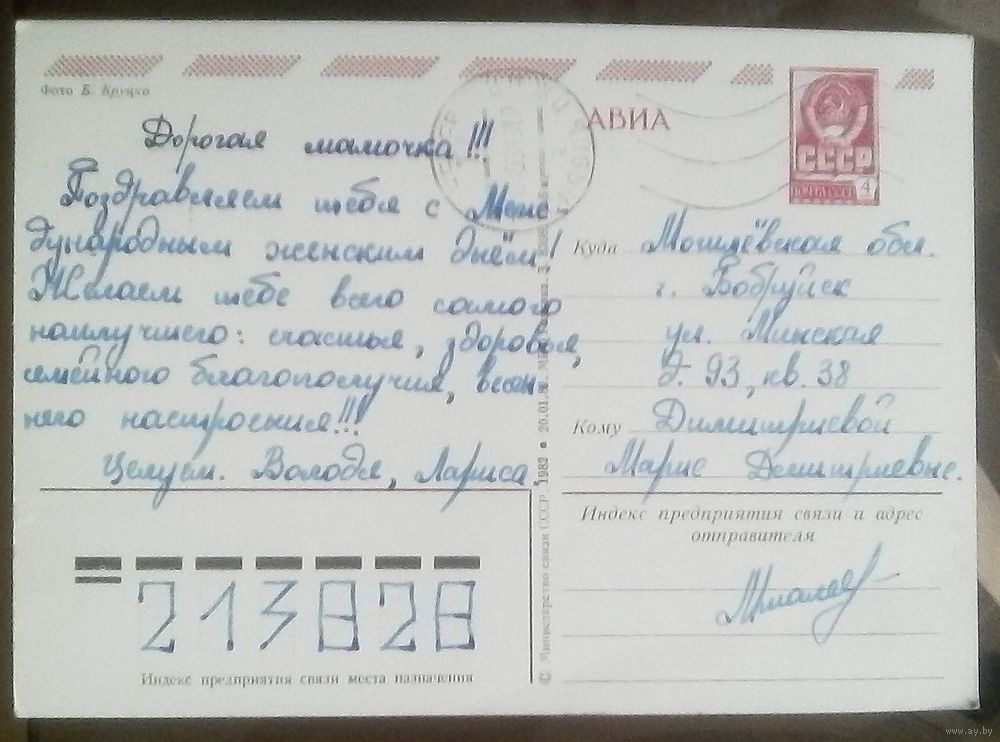 Фото Б. Круцко
Дорогая мамочка!!!
Поздравляем тебя с Меж-
дународным женским днём!
Желаем тебе всего самого
наилучшего: счастья, здоровья,
семейного благополучия, весен-
него настроения!!!
Целуем. Володя, Лариса.
213828
Индекс предприятия связи места назначения
© Министерство связи СССР. 1982 • 20.01.
АВИА
СССР
ПОЧТА СССР
4
Куда Могилёвская обл.
г. Бобруйск
ул. Минская
д. 93, кв. 38
Кому Димитриевой
Марие Демитриевне.
Индекс предприятия связи и адрес
отправителя
www.ay.by